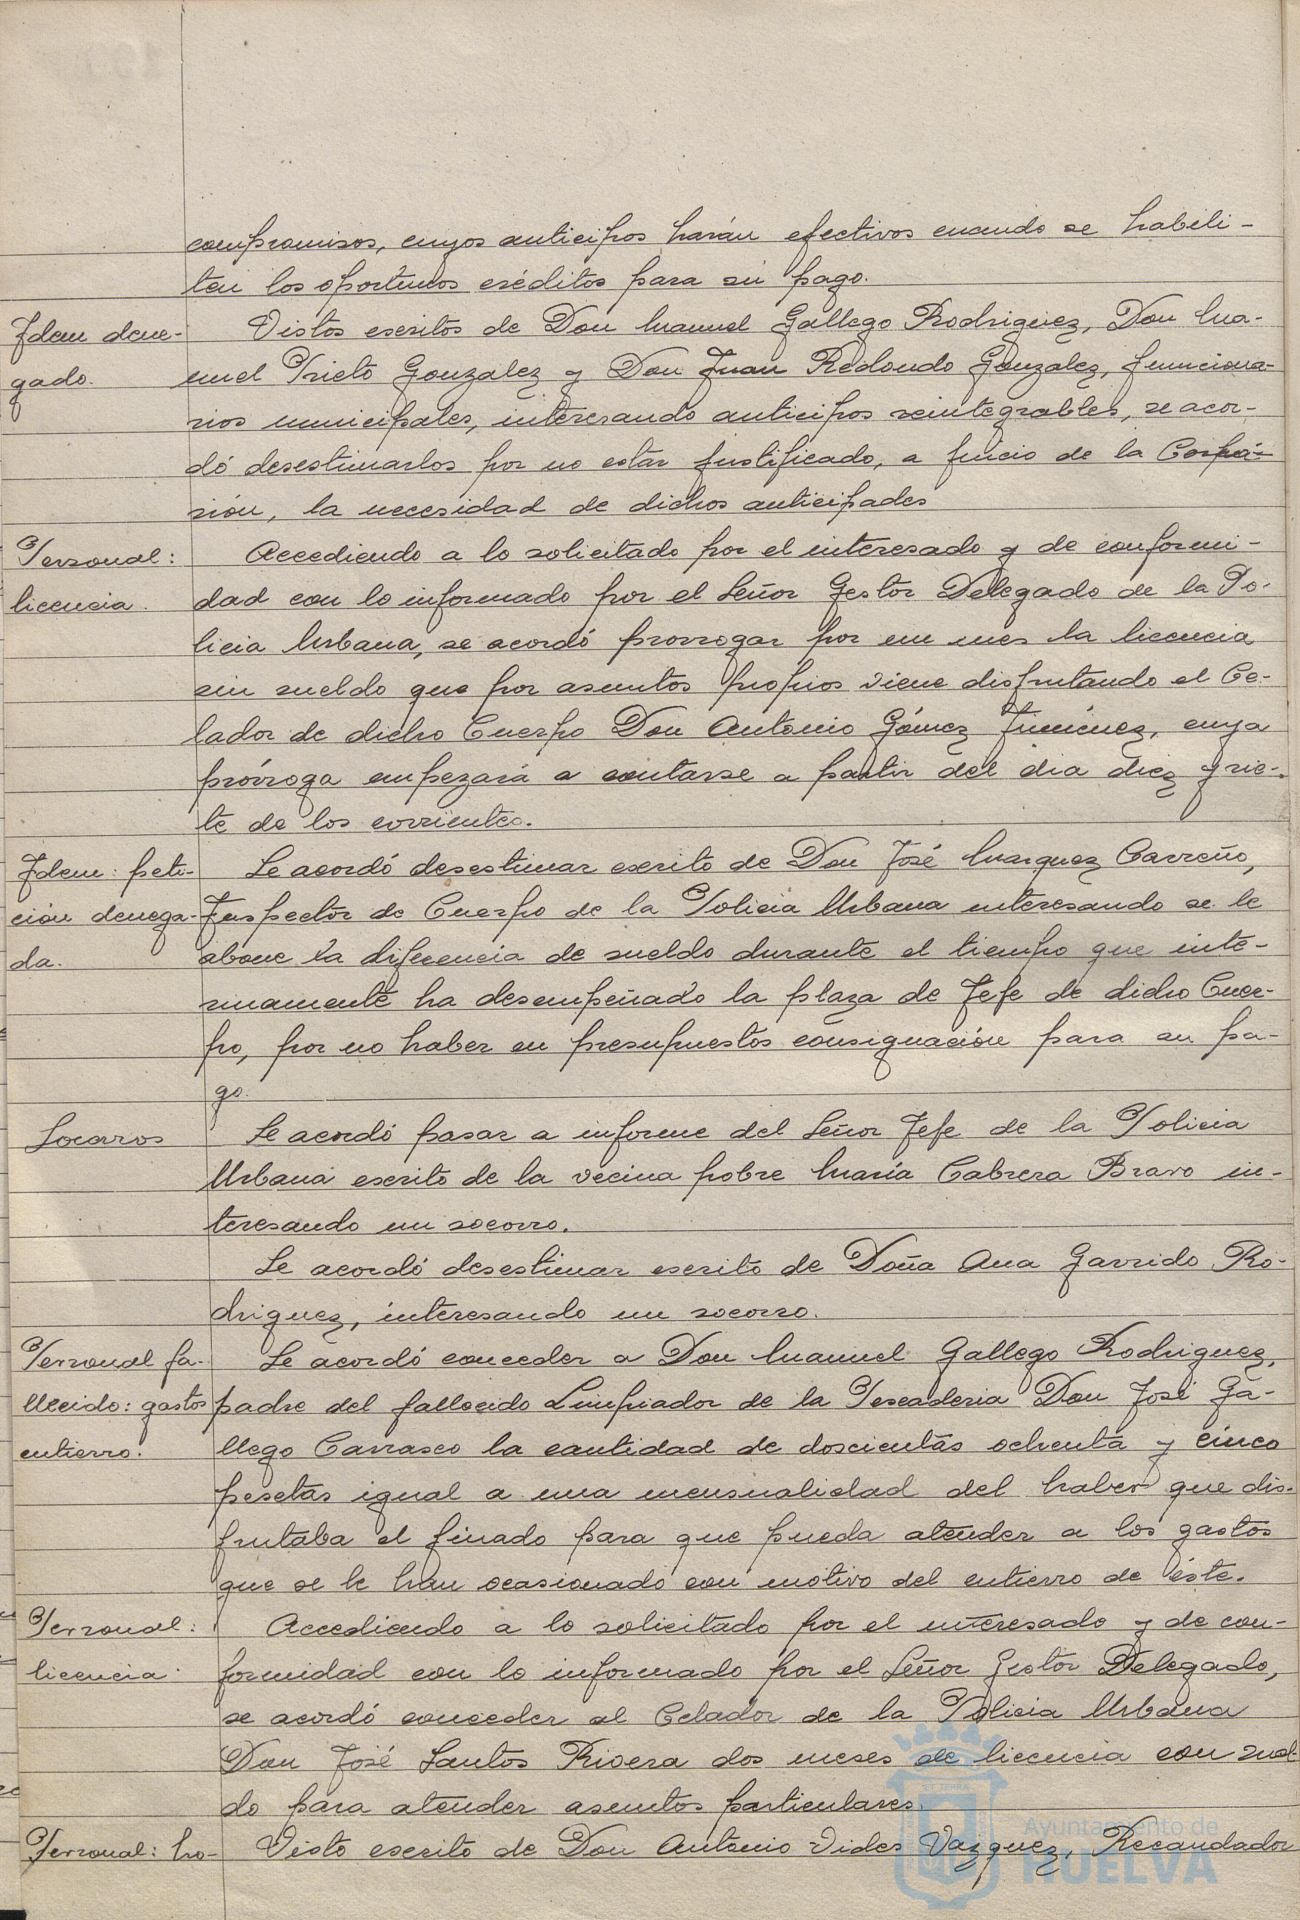 compromisos, cuyos anticipos harán efectivos cuando se habili-
ten los oportunos créditos para su pago.
Idem dene-
gado.
Vistos escritos de Don Manuel Gallego Rodriguez, Don Ma-
nuel Prieto Gonzalez y Don Juan Redondo Gonzalez, funciona-
rios municipales, interesando anticipos reintegrables, se acor-
dó desestimarlos por no estar justificado, a juicio de la Corpo-
ración, la necesidad de dichos anticipades
Personal:
licencia.
Accediendo a lo solicitado por el interesado y de conformi-
dad con lo informado por el Señor Gestor Delegado de la Po-
licia Urbana, se acordó prorrogar por un mes la licencia
sin sueldo que por asuntos propios viene disfrutando el Ce-
lador de dicho Cuerpo Don Antonio Gómez Jiménez, cuya
prórroga empezará a contarse a partir del dia diez y sie-
te de los corrientes.
Idem: peti-
ción denega-
da.
Se acordó desestimar escrito de Don José Marquez Carreño,
Inspector de Cuerpo de la Policia Urbana interesando se le
abone la diferencia de sueldo durante el tiempo que inte-
rinamente ha desempeñado la plaza de Jefe de dicho Cuer-
po, por no haber en presupuestos consignación para su pa-
go.
Socorros
Se acordó pasar a informe del Señor Jefe de la Policia
Urbana escrito de la vecina pobre María Cabrera Bravo in-
teresando un socorro.
Se acordó desestimar escrito de Doña Ana Garrido Ro-
driguez, interesando un socorro.
Personal fa-
llecido: gastos
entierro.
Se acordó conceder a Don Manuel Gallego Rodriguez,
padre del fallecido Limpiador de la Pescaderia Don José Ga-
llego Carrasco la cantidad de doscientas ochenta y cinco
pesetas igual a una mensualidad del haber que dis-
frutaba el finado para que pueda atender a los gastos
que se le han ocasionado con motivo del entierro de éste.
Personal:
licencia.
Accediendo a lo solicitado por el interesado y de con-
formidad con lo informado por el Señor Gestor Delegado,
se acordó conceder al Celador de la Policia Urbana
Don José Santos Rivera dos meses de licencia con suel-
do para atender asuntos particulares.
Personal: ho-
Visto escrito de Don Antonio Vides Vazquez, Recaudador
Ayuntamiento de
HUELVA